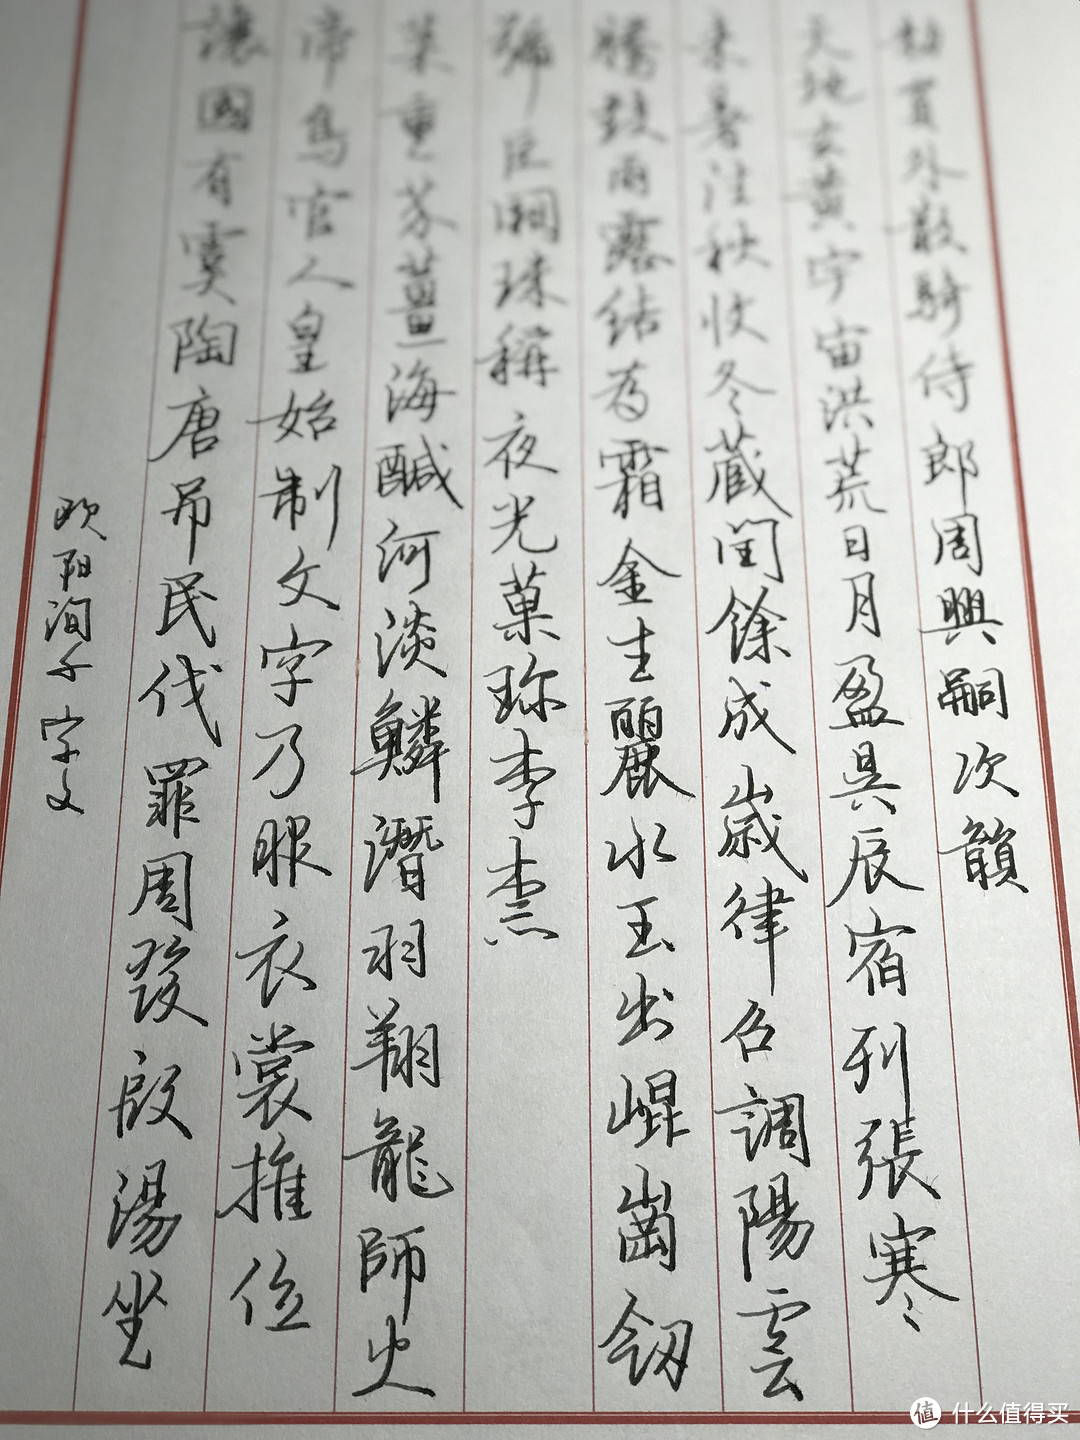 敕員外散騎侍郎周興嗣次韻
天地玄黃宇宙洪荒日月盈昃辰宿列張寒
来暑往秋收冬蔵閏餘成歳律召調陽雲
騰致雨露結為霜金生麗水玉出崐崗劒
號巨闕珠稱夜光菓珎李柰
菜重芥薑海醎河淡鱗潛羽翔龍師火
帝鳥官人皇始制文字乃服衣裳推位
讓國有虞陶唐吊民伐罪周發殷湯坐
欧阳洵千字文
值 什么值得买